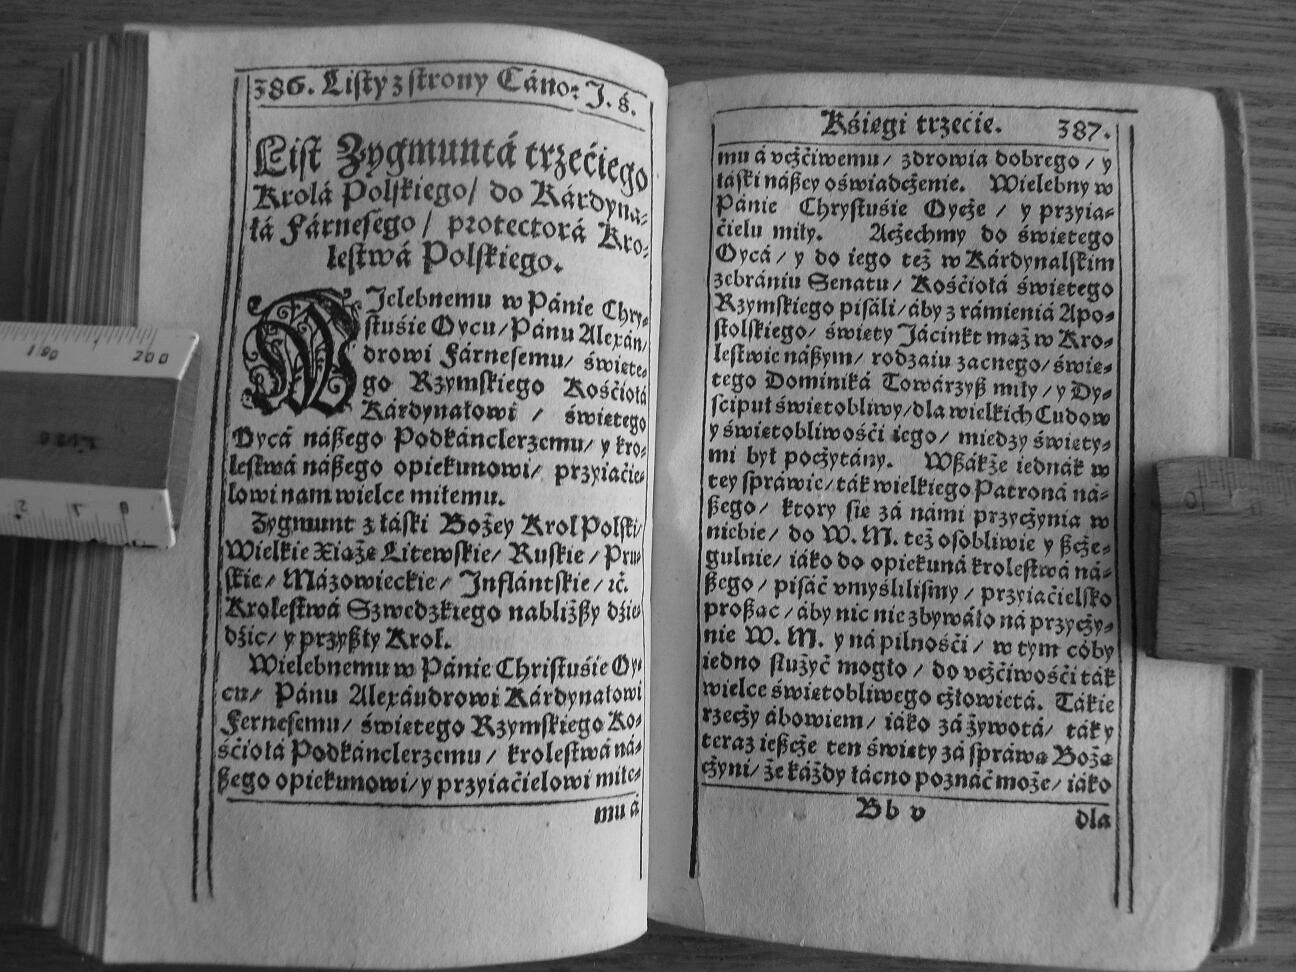 386. Listy z strony Cáno: J. ś.
List Zygmuntá trzećiego
Krolá Polskiego/ do Kárdyna-
łá Fárnesego/ protectorá Kro-
lestwá Polskiego.
WJelebnemu w Pánie Chry-
stuśie Oycu/ Pánu Alexán/
drowi Fárnesemu/ świete-
go Rzymskiego Kośćiołá
Kárdynałowi/ świetego
Oycá nászego Podkánclerzemu/ y kro-
lestwá nászego opiekunowi/ przyiaćie-
lowi nam wielce miłemu.
Zygmunt z łáski Bożey Krol Polski/
Wielkie Xiąże Litewskie/ Ruskie/ Pru-
skie/ Mázowieckie/ Jnflántskie/ ꝛć.
Krolestwá Szwedzkiego nabliższy dźie-
dźic/ y przyszły Krol.
Wielebnemu w Pánie Christuśie Oy-
cu/ Pánu Alexándrowi Kárdynałowi
Fernesemu/ świetego Rzymskiego Ko-
śćiołá Podkánclerzemu/ krolestwá ná-
szego opiekunowi/ y przyiaćielowi miłe-
mu á
Kśięgi trzećie. 387.
mu á vcżćiwemu/ zdrowia dobrego/ y
łáski nászey oświadcżenie. Wielebny w
Pánie Chrystuśie Oycże/ y przyia-
ćielu miły. Acżechmy do świetego
Oycá/ y do iego też w Kárdynalskim
zebrániu Senatu/ Kośćiołá świetego
Rzymskiego pisáli/ áby z rámieniá Apo-
stolskiego/ świety Jácinkt mąż w Kro-
lestwie nászym/ rodzaiu zacnego/ świe-
tego Dominiká Towárzysz miły/ y Dy-
scipuł świetobliwy/ dla wielkich Cudow
y świetobliwośći iego/ miedzy święty-
mi był pocżytány. Wszákże iednák w
tey spráwie/ ták wielkiego Patroná ná-
szego/ ktory sie zá námi przycżynia w
niebie/ do W. M. też osobliwie y szcże-
gulnie/ iáko do opiekuná krolestwá ná-
szego/ pisáć vmyślilismy/ przyiaćielsko
prosząc/ áby nic nie zbywáło ná przycży-
nie W. M. y ná pilnośći/ w tym cóby
iedno służyć mogło/ do vcżćiwośći ták
wielce świetobliwego cżłowieká. Tákie
rzecży ábowiem/ iáko zá żywotá/ ták y
teraz ieszcże ten święty zá spráwą Bożą
cżyni/ że káżdy łácno poznáć może/ iáko
Bb v
dla
190
200
2
1
0
0